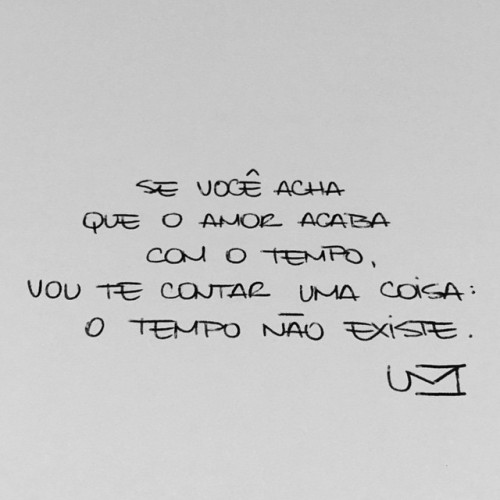 SE VOCÊ ACHA
QUE O AMOR ACABA
COM O TEMPO,
VOU TE CONTAR UMA COISA:
O TEMPO NÃO EXISTE.